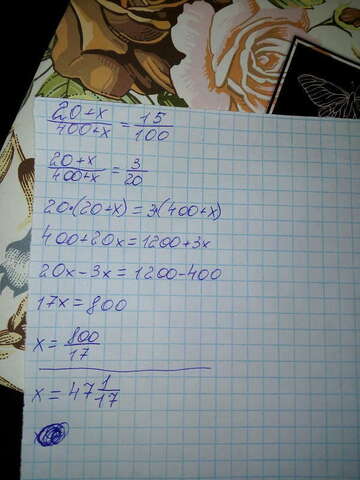 20+x/400+x = 15/100
20+x/400+x = 3/20
20·(20+x) = 3·(400+x)
400+20x = 1200+3x
20x-3x = 1200-400
17x = 800
x = 800/17
x = 47 1/17